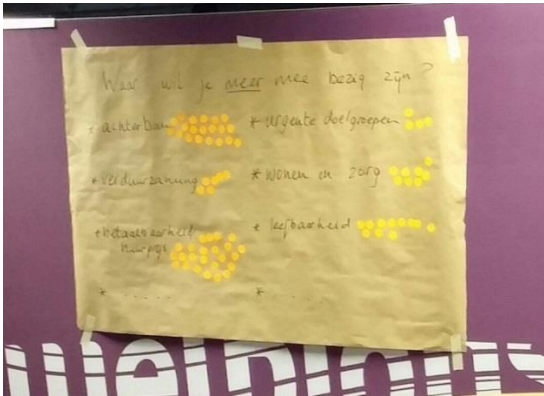 Waar wil je meer mee bezig zijn?
* achterban
* urgente doelgroepen
* verduurzaming
* wonen en zorg
* betaalbaarheid
huurprijs
* leefbaarheid
* .....
* .....